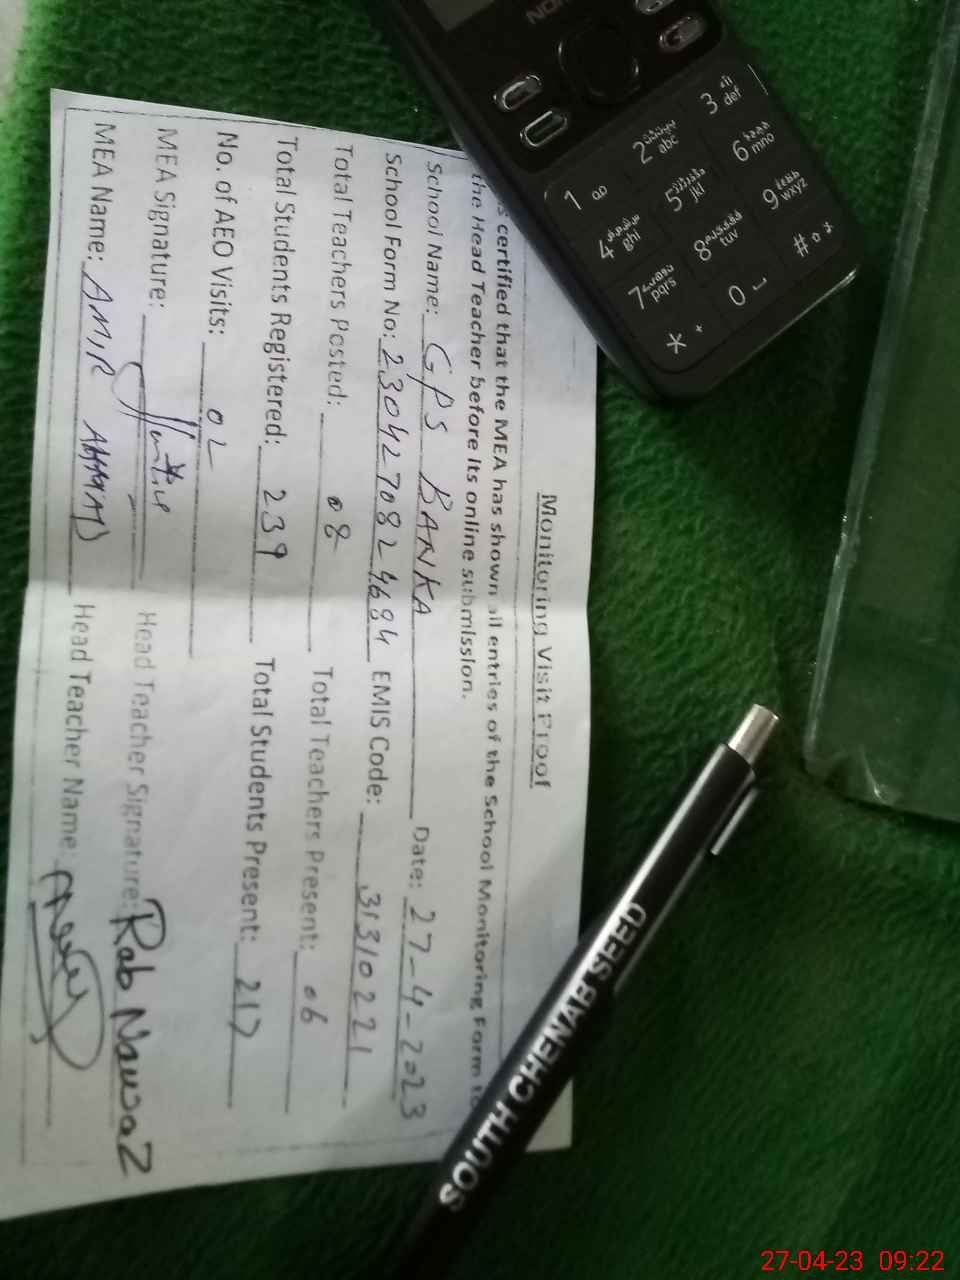 Monitoring Visit Proof
s certified that the MEA has shown all entries of the School Monitoring Form to
the Head Teacher before its online submission.
School Name: GPS BANKA Date: 27-4-2023
School Form No: 2304270824684 EMIS Code: 31310221
Total Teachers Posted: 08 Total Teachers Present: 06
Total Students Registered: 239 Total Students Present: 217
No. of AEO Visits: 02
MEA Signature: Head Teacher Signature: Rab Nawaz
MEA Name: AMIR AHMAD Head Teacher Name:
NOK
1
2 abc
3 def
4 ghi
5 jkl
6 mno
7 pqrs
8 tuv
9 wxyz
*
0
#
SOUTH CHENAB SEED
27-04-23 09:22